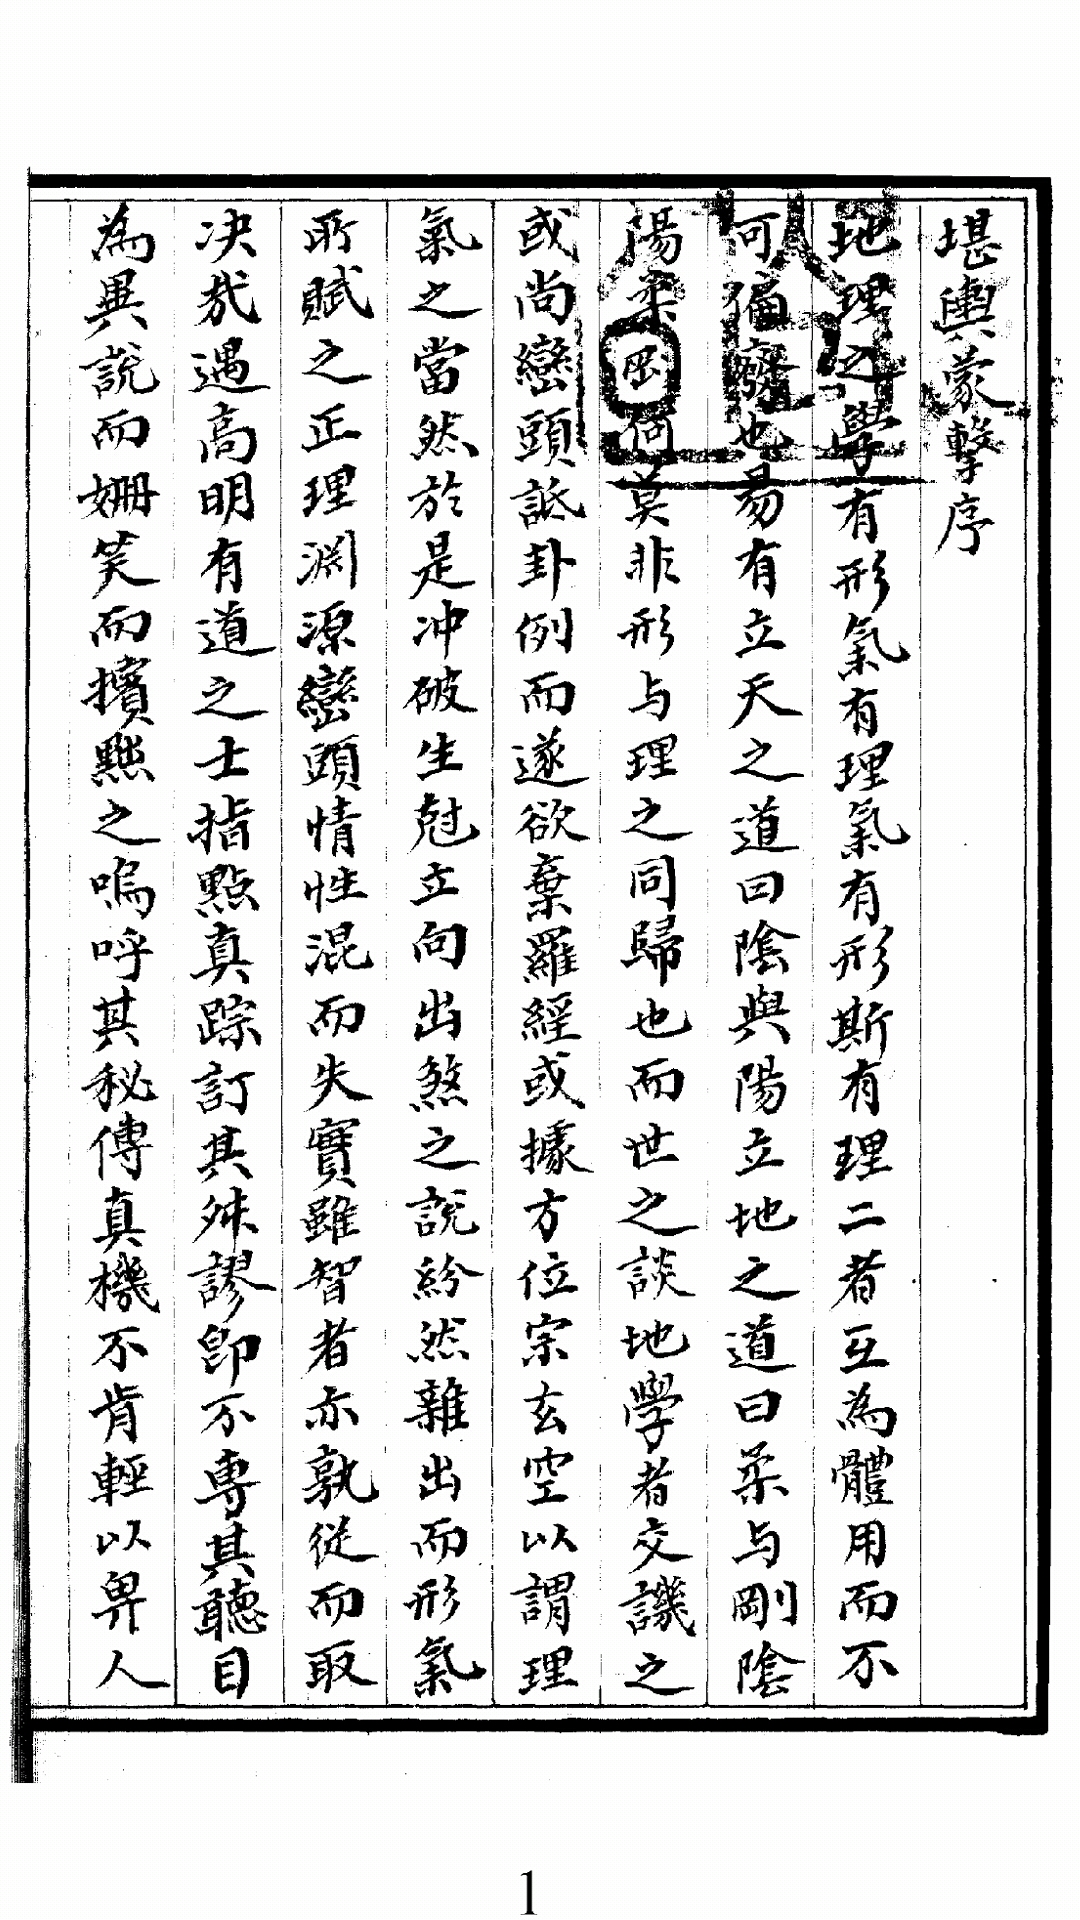 堪輿蒙擊序
地理之學有形氣有理氣有形斯有理二者互為體用而不
可偏廢也易有立天之道曰陰與陽立地之道曰柔与剛陰
陽柔罡何莫非形与理之同歸也而世之談地學者交譏之
或尚巒頭詆卦例而遂欲棄羅經或據方位宗玄空以謂理
氣之當然於是冲破生尅立向出煞之說紛然雜出而形氣
所賦之正理淵源巒頭情性混而失實雖智者亦孰從而取
决哉遇高明有道之士指點真踪訂其舛謬卽不專其聽目
為異說而姍笑而擯㸃之嗚呼其秘傳真機不肯輕以畀人
1